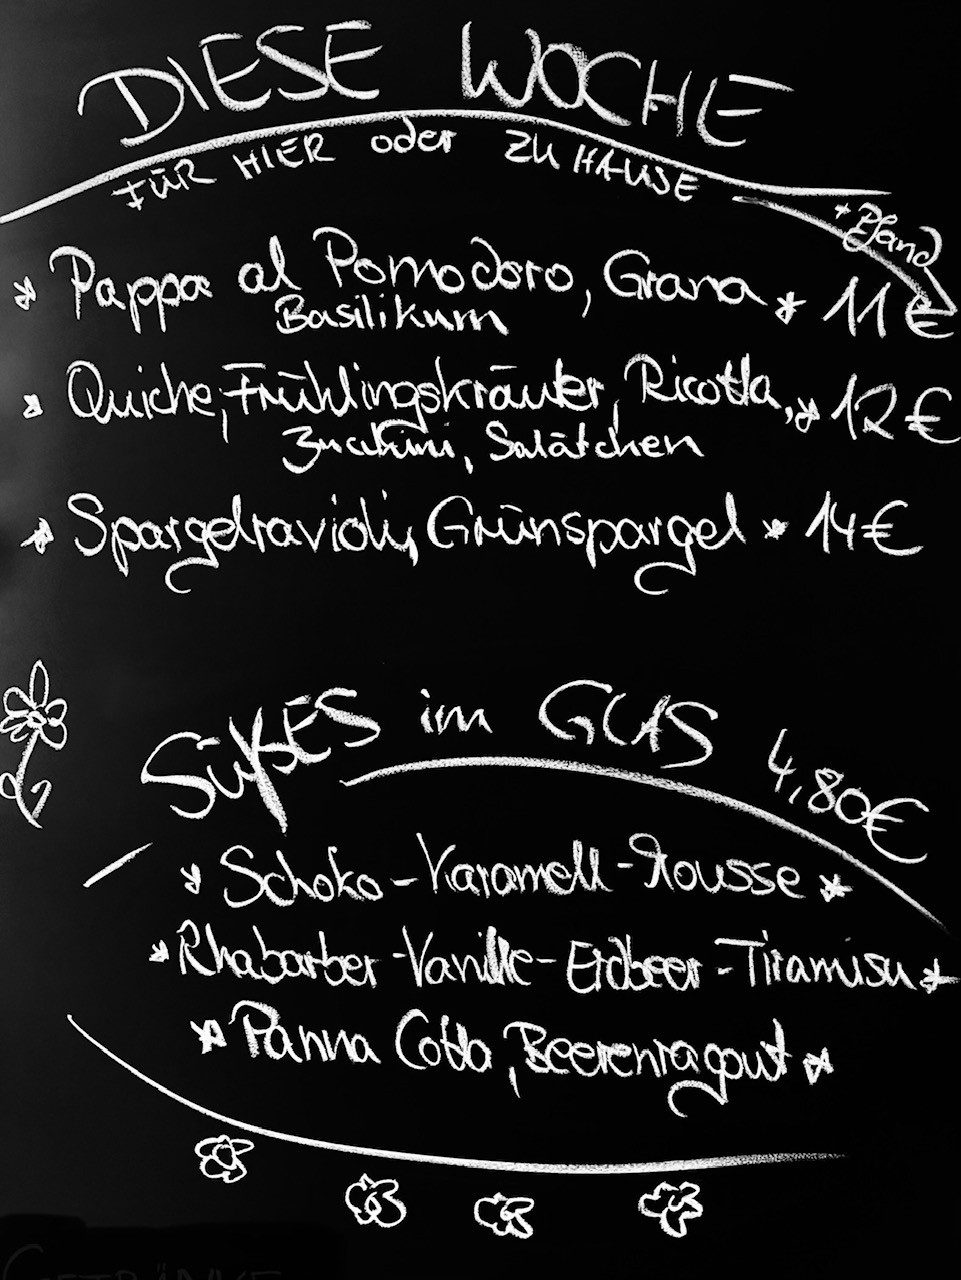 DIESE WOCHE
FÜR HIER oder ZU HAUSE
+ Pfand
* Pappa al Pomodoro, Grana * 11 €
Basilikum
* Quiche, Frühlingskräuter, Ricotta, * 12 €
Zucchini, Salätchen
* Spargelravioli, Grünspargel * 14 €
SÜßES im GLAS 4,80€
* Schoko-Karamell-Mousse *
* Rhabarber-Vanille-Erdbeer-Tiramisu *
* Panna Cotta, Beerenragout *
GETRÄNKE